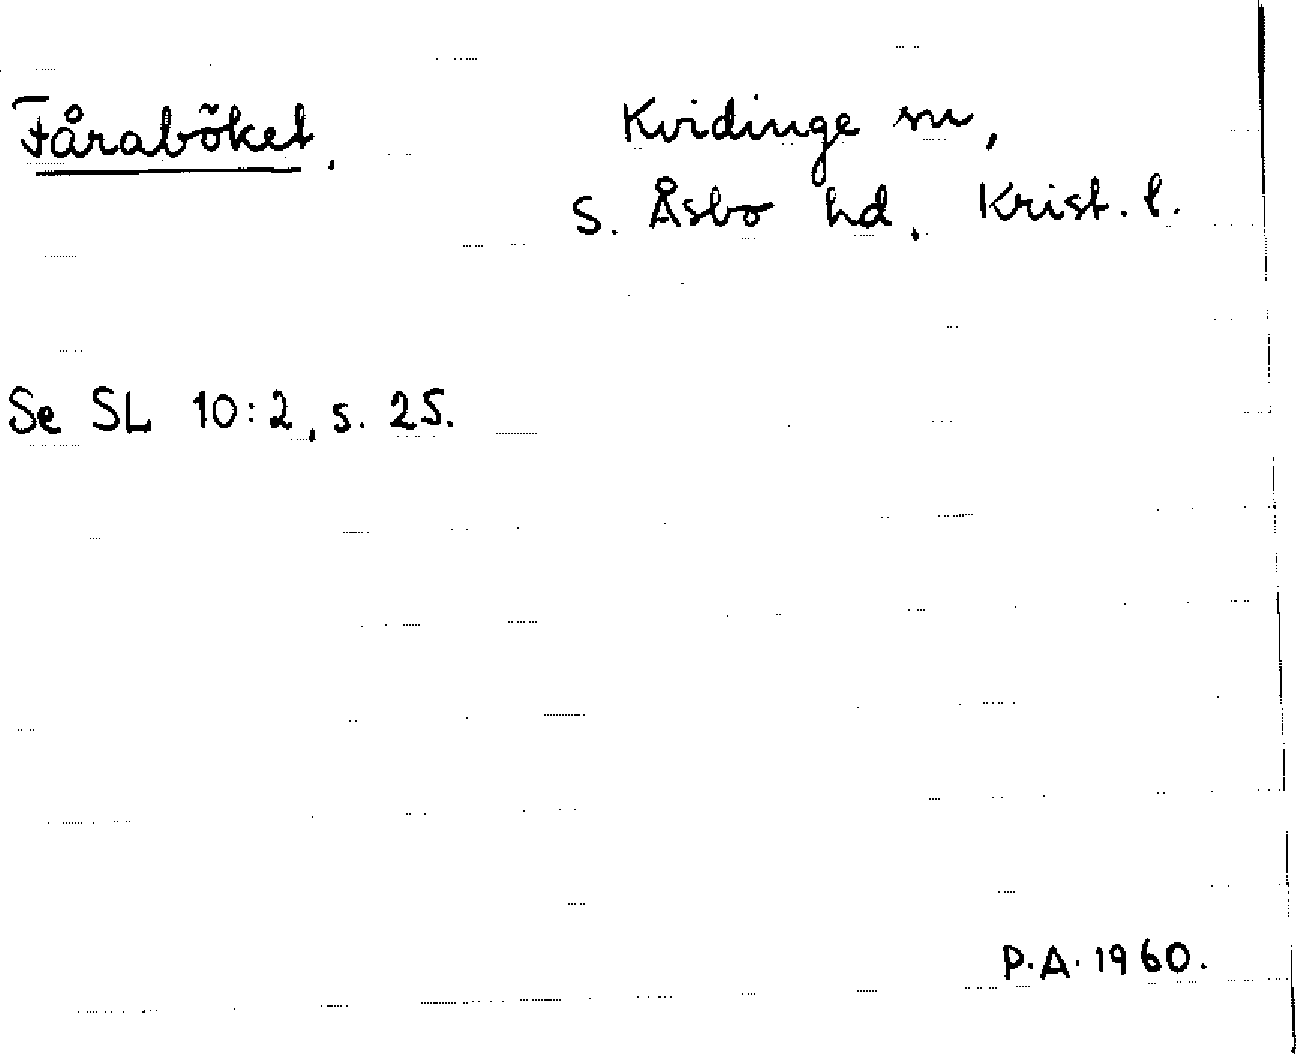 Fåraböket.
Kvidinge sn,
S. Åsbo hd. Krist. l.
Se SL 10:2, s. 25.
P.A. 1960.